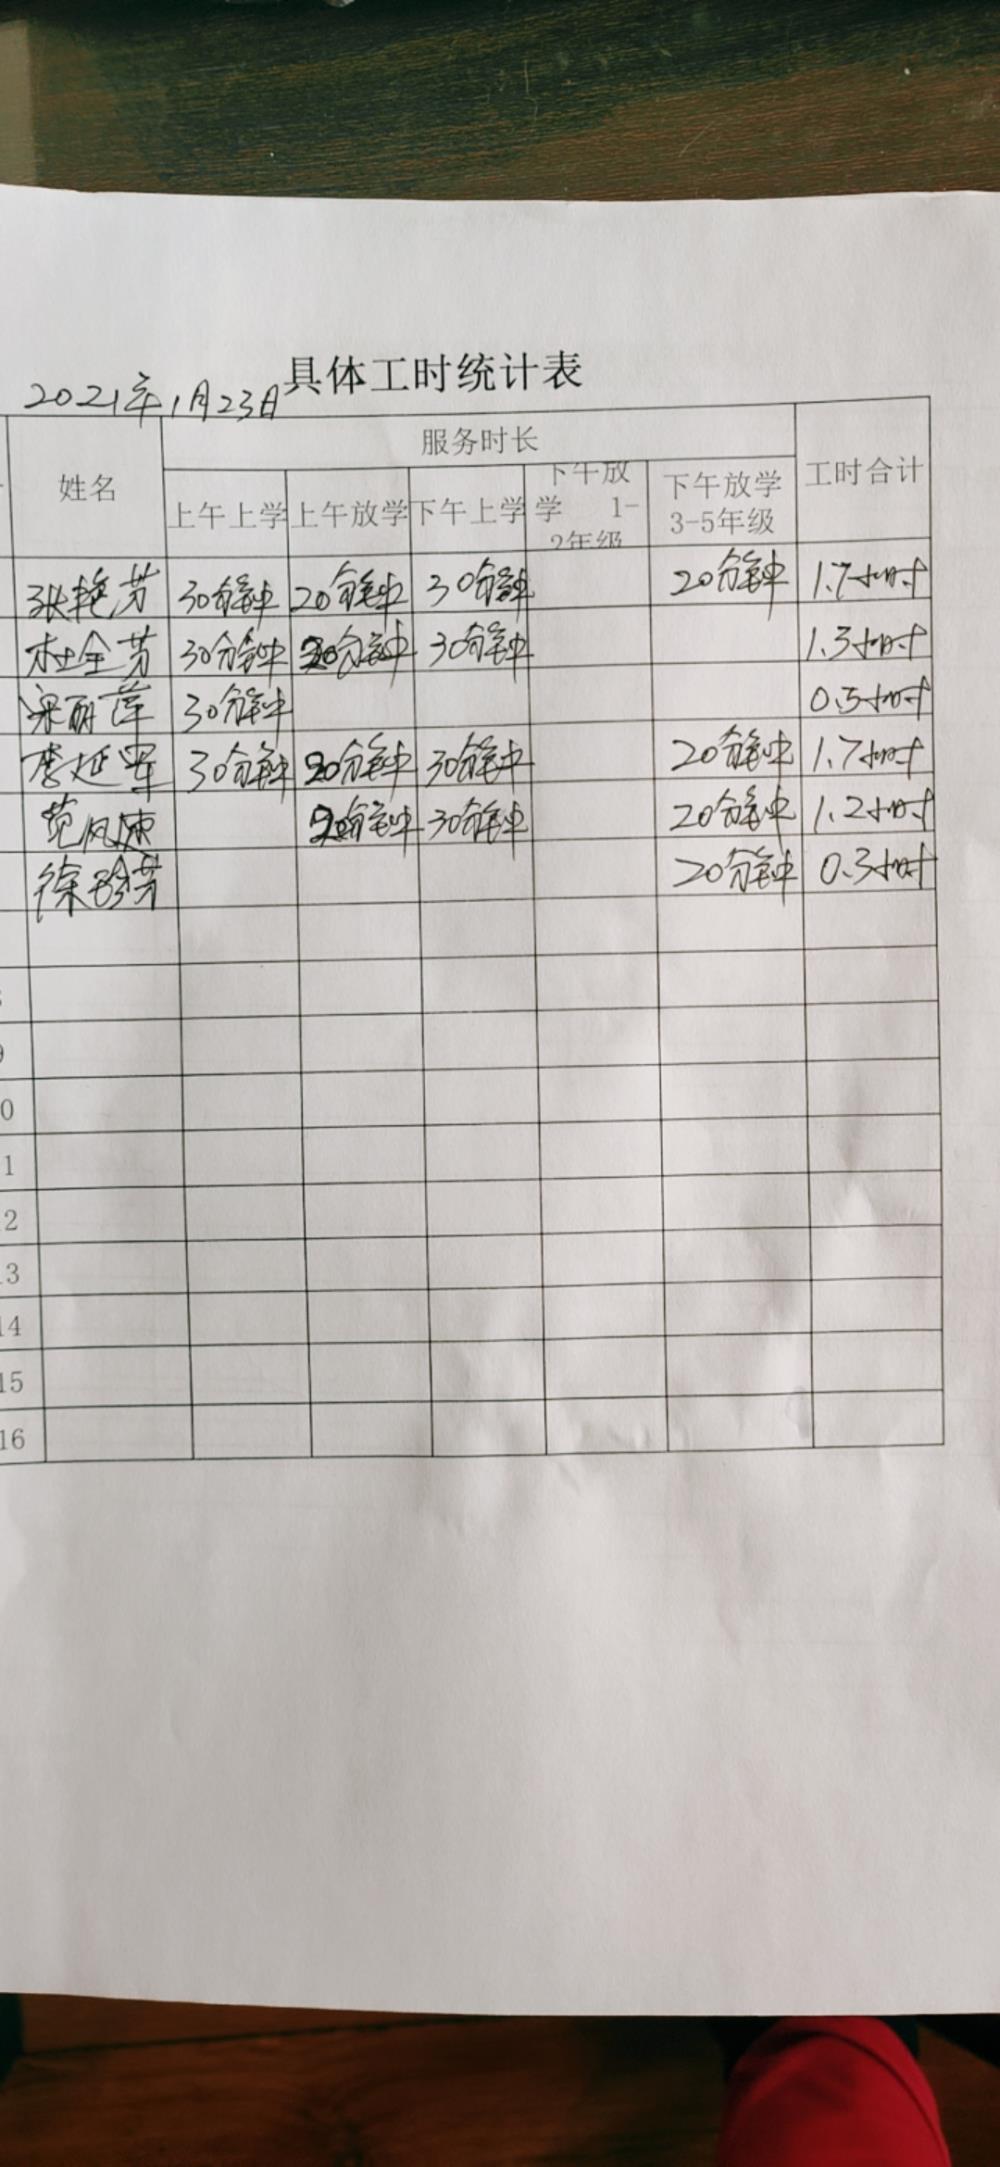 具体工时统计表
2021年1月23日
姓名 服务时长 工时合计
上午上学 上午放学 下午上学 下午放学 1-2年级 下午放学 3-5年级
张艳芳 30分钟 20分钟 30分钟 20分钟 1.7小时
杜全芳 30分钟 20分钟 30分钟 1.3小时
梁丽萍 30分钟 0.5小时
李延军 30分钟 20分钟 30分钟 20分钟 1.7小时
范凤 20分钟 30分钟 20分钟 1.2小时
徐珍芳 20分钟 0.3小时
9
0
1
2
13
14
15
16